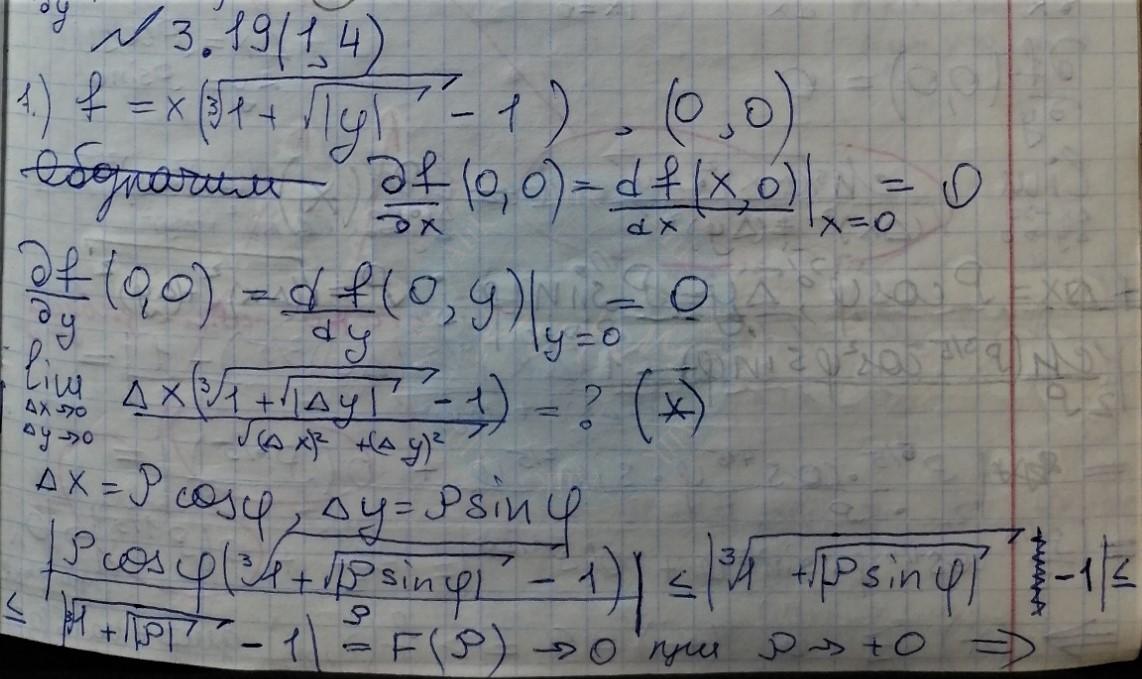 ду
№ 3.19(1,4)
1.) f = x(∛(1+√|y|) - 1), (0,0)
Обозначим ∂f/∂x (0,0) = df(x,0)/dx |x=0 = 0
∂f/∂y (0,0) = df(0,y)/dy |y=0 = 0
lim Δx→0 Δy→0 Δx(∛(1+√|Δy|) - 1) / √((Δx)² + (Δy)²) = ? (x)
Δx = ρ cosφ, Δy = ρ sin φ
|ρ cosφ(∛(1+√|ρ sin φ|) - 1) / ρ| ≤ |∛(1+√|ρ sin φ|) - 1| ≤
≤ |∛(1+√|ρ|) - 1| = F(ρ) → 0 при ρ → +0 ⇒